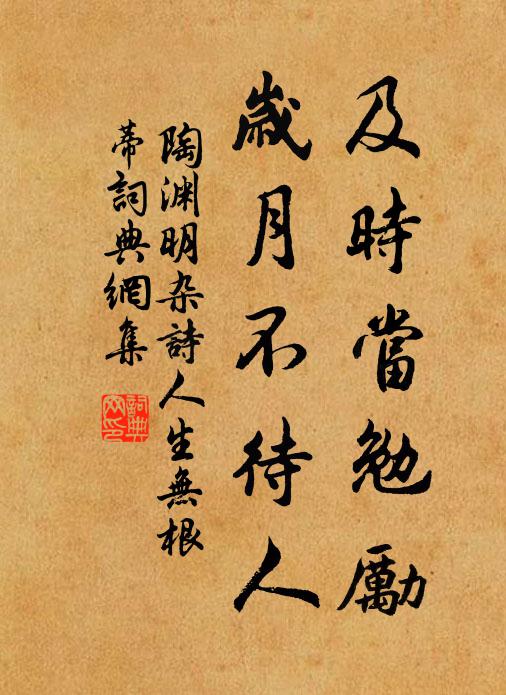 及時當勉勵
歲月不待人
陶渊明杂詩人生無根
蒂詞典網集
詞典网印